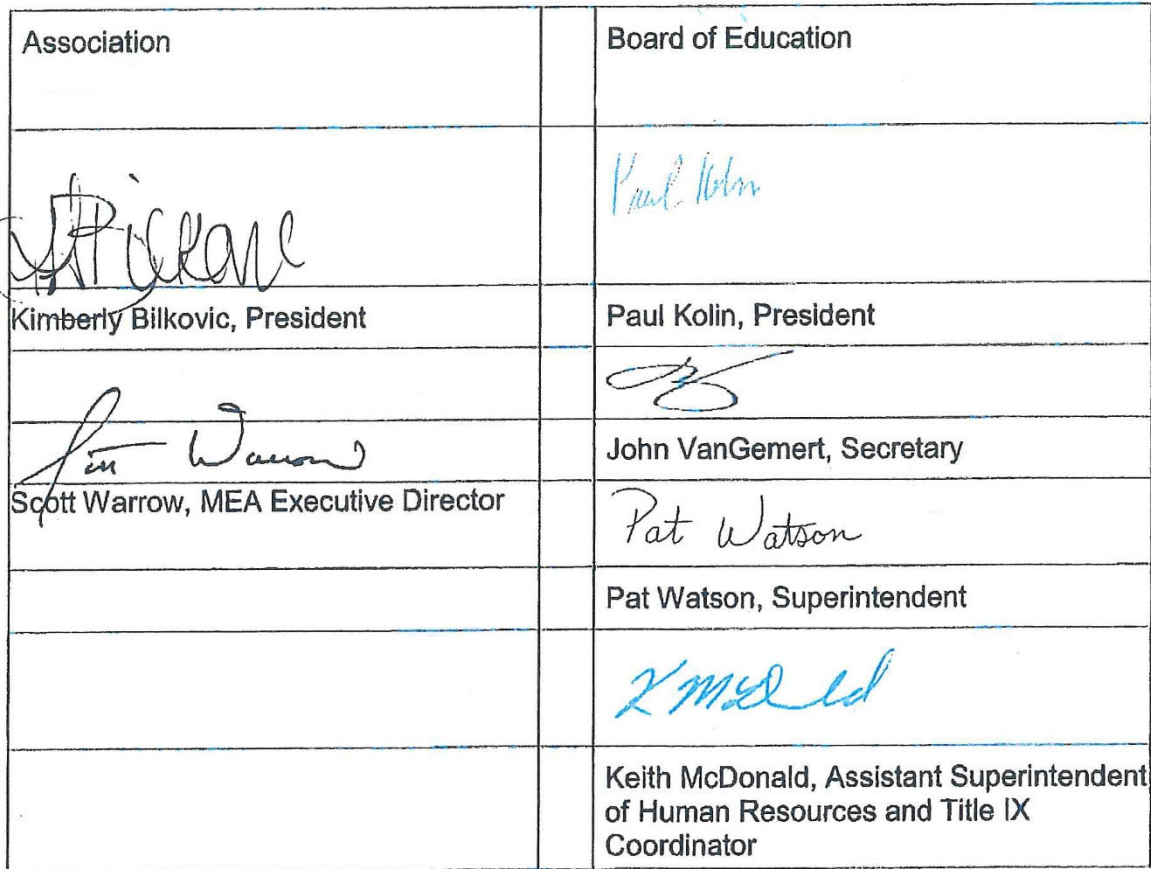 Association
Board of Education
Paul Kolin
Kimberly Bilkovic, President
Paul Kolin, President
John VanGemert, Secretary
Scott Warrow, MEA Executive Director
Pat Watson
Pat Watson, Superintendent
K McDonald
Keith McDonald, Assistant Superintendent
of Human Resources and Title IX
Coordinator